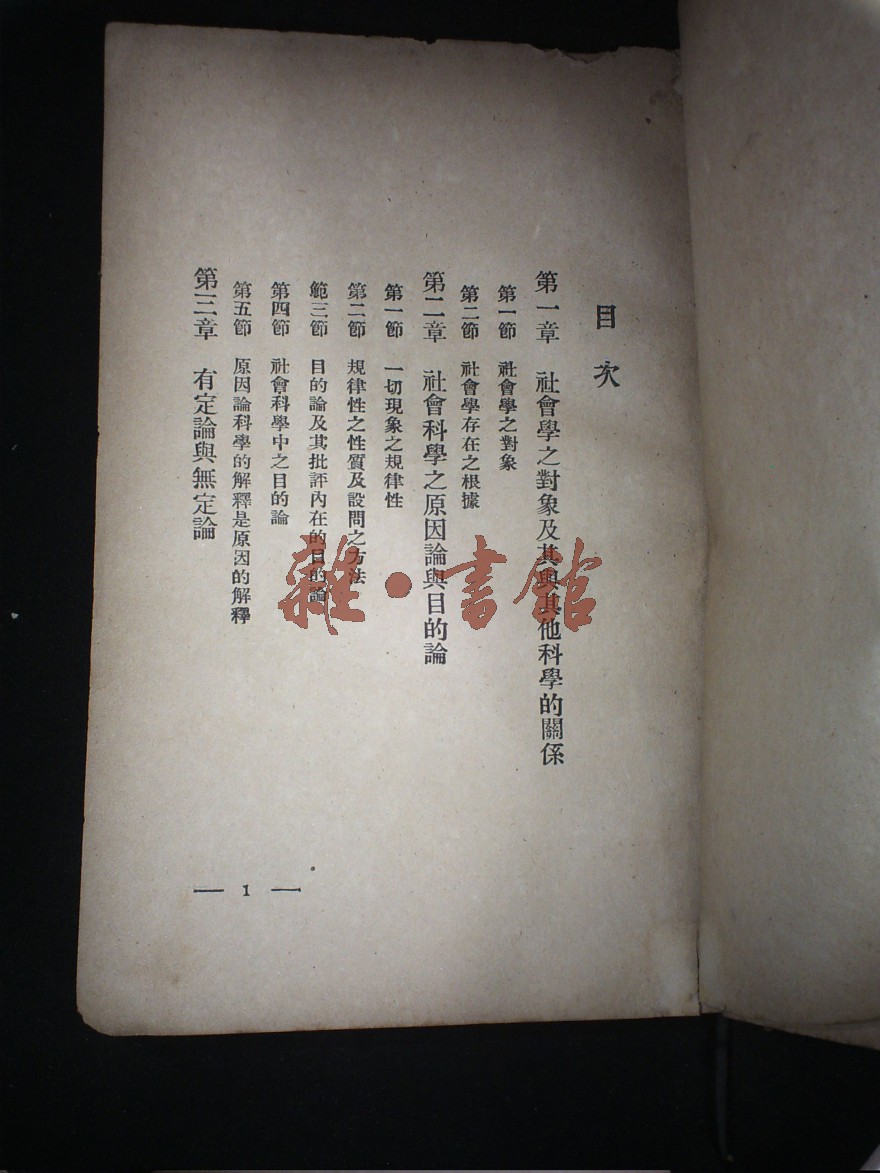 目次
第一章 社會學之對象及其與其他科學的關係
第一節 社會學之對象
第二節 社會學存在之根據
第二章 社會科學之原因論與目的論
第一節 一切現象之規律性
第二節 規律性之性質及設問之方法
範三節 目的論及其批評內在的目的論
第四節 社會科學中之目的論
第五節 原因論科學的解釋是原因的解釋
第三章 有定論與無定論
— 1 —
雜·書館